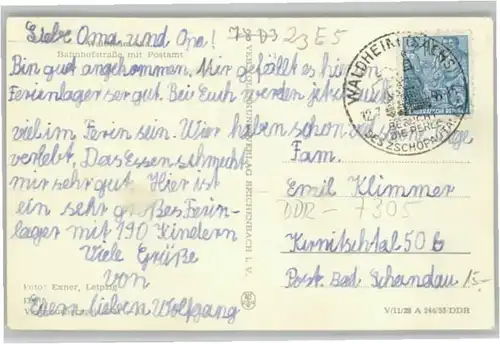 Liebe Oma und Opa!
78 D3 23 E5
Bahnhofstraße mit Postamt
Bin gud angekommen. Mir gefällt es hir im
Ferienlager ser gut. Bei Euch werden jetzt auch
viel im Ferin sein. Wier haben schon
verlebt. Das Essen schmeckt
mir sehr gut. Hier ist
ein sehr großes Ferin-
lager mit 190 Kindern
Viele Grüße
von
Euern lieben Wolfgang
Foto: Exner, Leipzig
WALDHEIM
DIE PERLE
DES ZSCHOPAUTALES
REICHENBACH i. V.
Fam.
Emil Klimmer
DDR- 7305
Kirnitschtal 50 b
Post. Bad Schandau
15.-
V/11/28 A 244/55 DDR